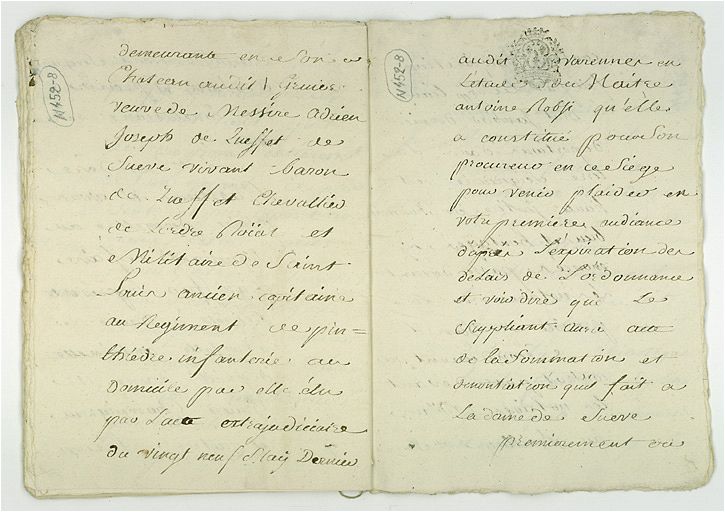 N452-8
demeurante en son
Chateau audit
veuve de Messire adrien
Joseph de
Sueve vivant baron
de Chevallier
de Lordre Roïal et
Militaire de Saint
Louis ancien capitaine
au Regiment de pin=
thiédre infanterie au
Domicile par elle elu
par Lacte extrajudiciaire
du vingt neuf May Dernier
N452-8
audit varennes en
Letude de Maitre
antoine qu'elle
a constitué pour son
procureur en ce Siége
pour venir plaider en
votre premiere audiance
dapres Lexpiration des
delais de Lordonnance
et voir dire que Le
Suppliant aura acte
de la Sommation et
qu'il fait a
La dame de Sueve
premierement